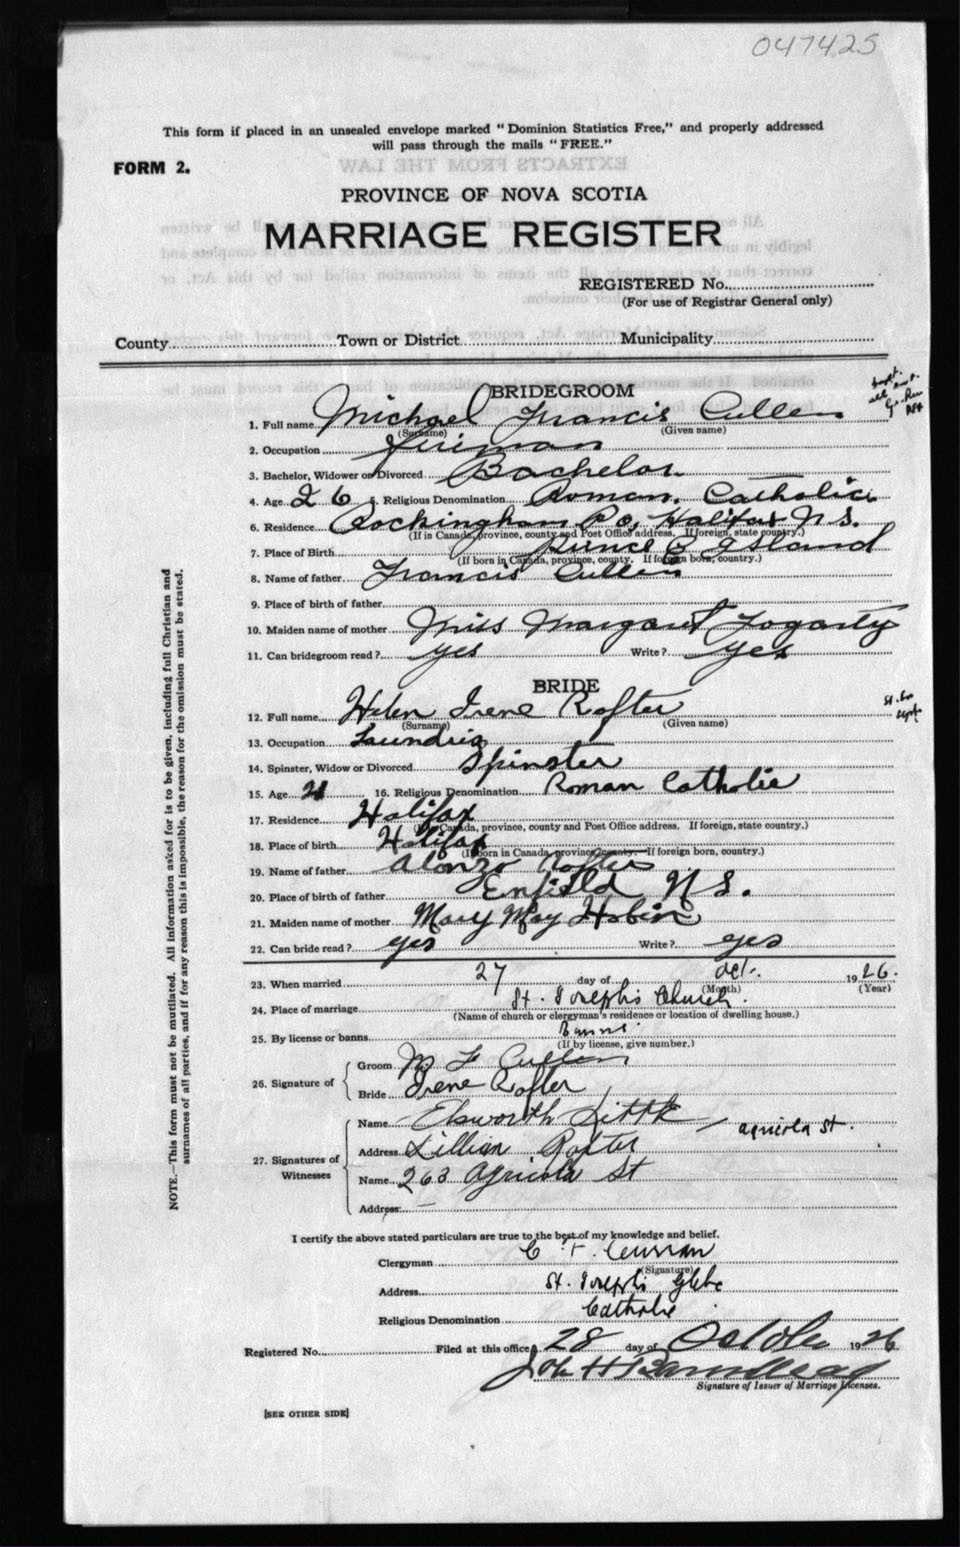 047425
This form if placed in an unsealed envelope marked "Dominion Statistics Free," and properly addressed
will pass through the mails "FREE."
FORM 2.
PROVINCE OF NOVA SCOTIA
MARRIAGE REGISTER
REGISTERED No.
(For use of Registrar General only)
County Town or District Municipality
BRIDEGROOM
1. Full name Michael Francis Cullen
(Surname) (Given name)
2. Occupation fireman
3. Bachelor, Widower or Divorced Bachelor
4. Age 26 5. Religious Denomination Roman Catholic
6. Residence Rockingham P.O. Halifax N S.
(If in Canada, province, county and Post Office address. If foreign, state country.)
7. Place of Birth Prince E Island
(If born in Canada, province, county. If foreign born, country.)
8. Name of father Francis Cullen
9. Place of birth of father
10. Maiden name of mother Miss Margaret Fogarty
11. Can bridegroom read? yes Write? yes
BRIDE
12. Full name Helen Irene Rafter
(Surname) (Given name)
13. Occupation Laundrig
14. Spinster, Widow or Divorced Spinster
15. Age 21 16. Religious Denomination Roman Catholic
17. Residence Halifax
(If in Canada, province, county and Post Office address. If foreign, state country.)
18. Place of birth Halifax
(If born in Canada, province, county. If foreign born, country.)
19. Name of father Alonzo Rafter
20. Place of birth of father Enfield N S.
21. Maiden name of mother Mary May Hobin
22. Can bride read? yes Write? yes
23. When married 27 day of Oct. 1926.
(Month) (Year)
24. Place of marriage St. Joseph's Church.
(Name of church or clergyman's residence or location of dwelling house.)
25. By license or banns Banns
(If by license, give number.)
26. Signature of
Groom M F Cullen
Bride Irene Rafter
27. Signatures of Witnesses
Name Elsworth Little – Agricola St.
Address Lillian Rafter
Name 263 Agricola St
Address –
I certify the above stated particulars are true to the best of my knowledge and belief.
Clergyman C. F. Curran
(Signature)
Address St. Joseph's Glebe
Religious Denomination Catholic
Registered No. Filed at this office 28 day of October 1926
Signature of Issuer of Marriage Licenses.
[SEE OTHER SIDE]
NOTE.—This form must not be mutilated. All information asked for is to be given, including full Christian and
surnames of all parties, and if for any reason this is impossible, the reason for the omission must be stated.